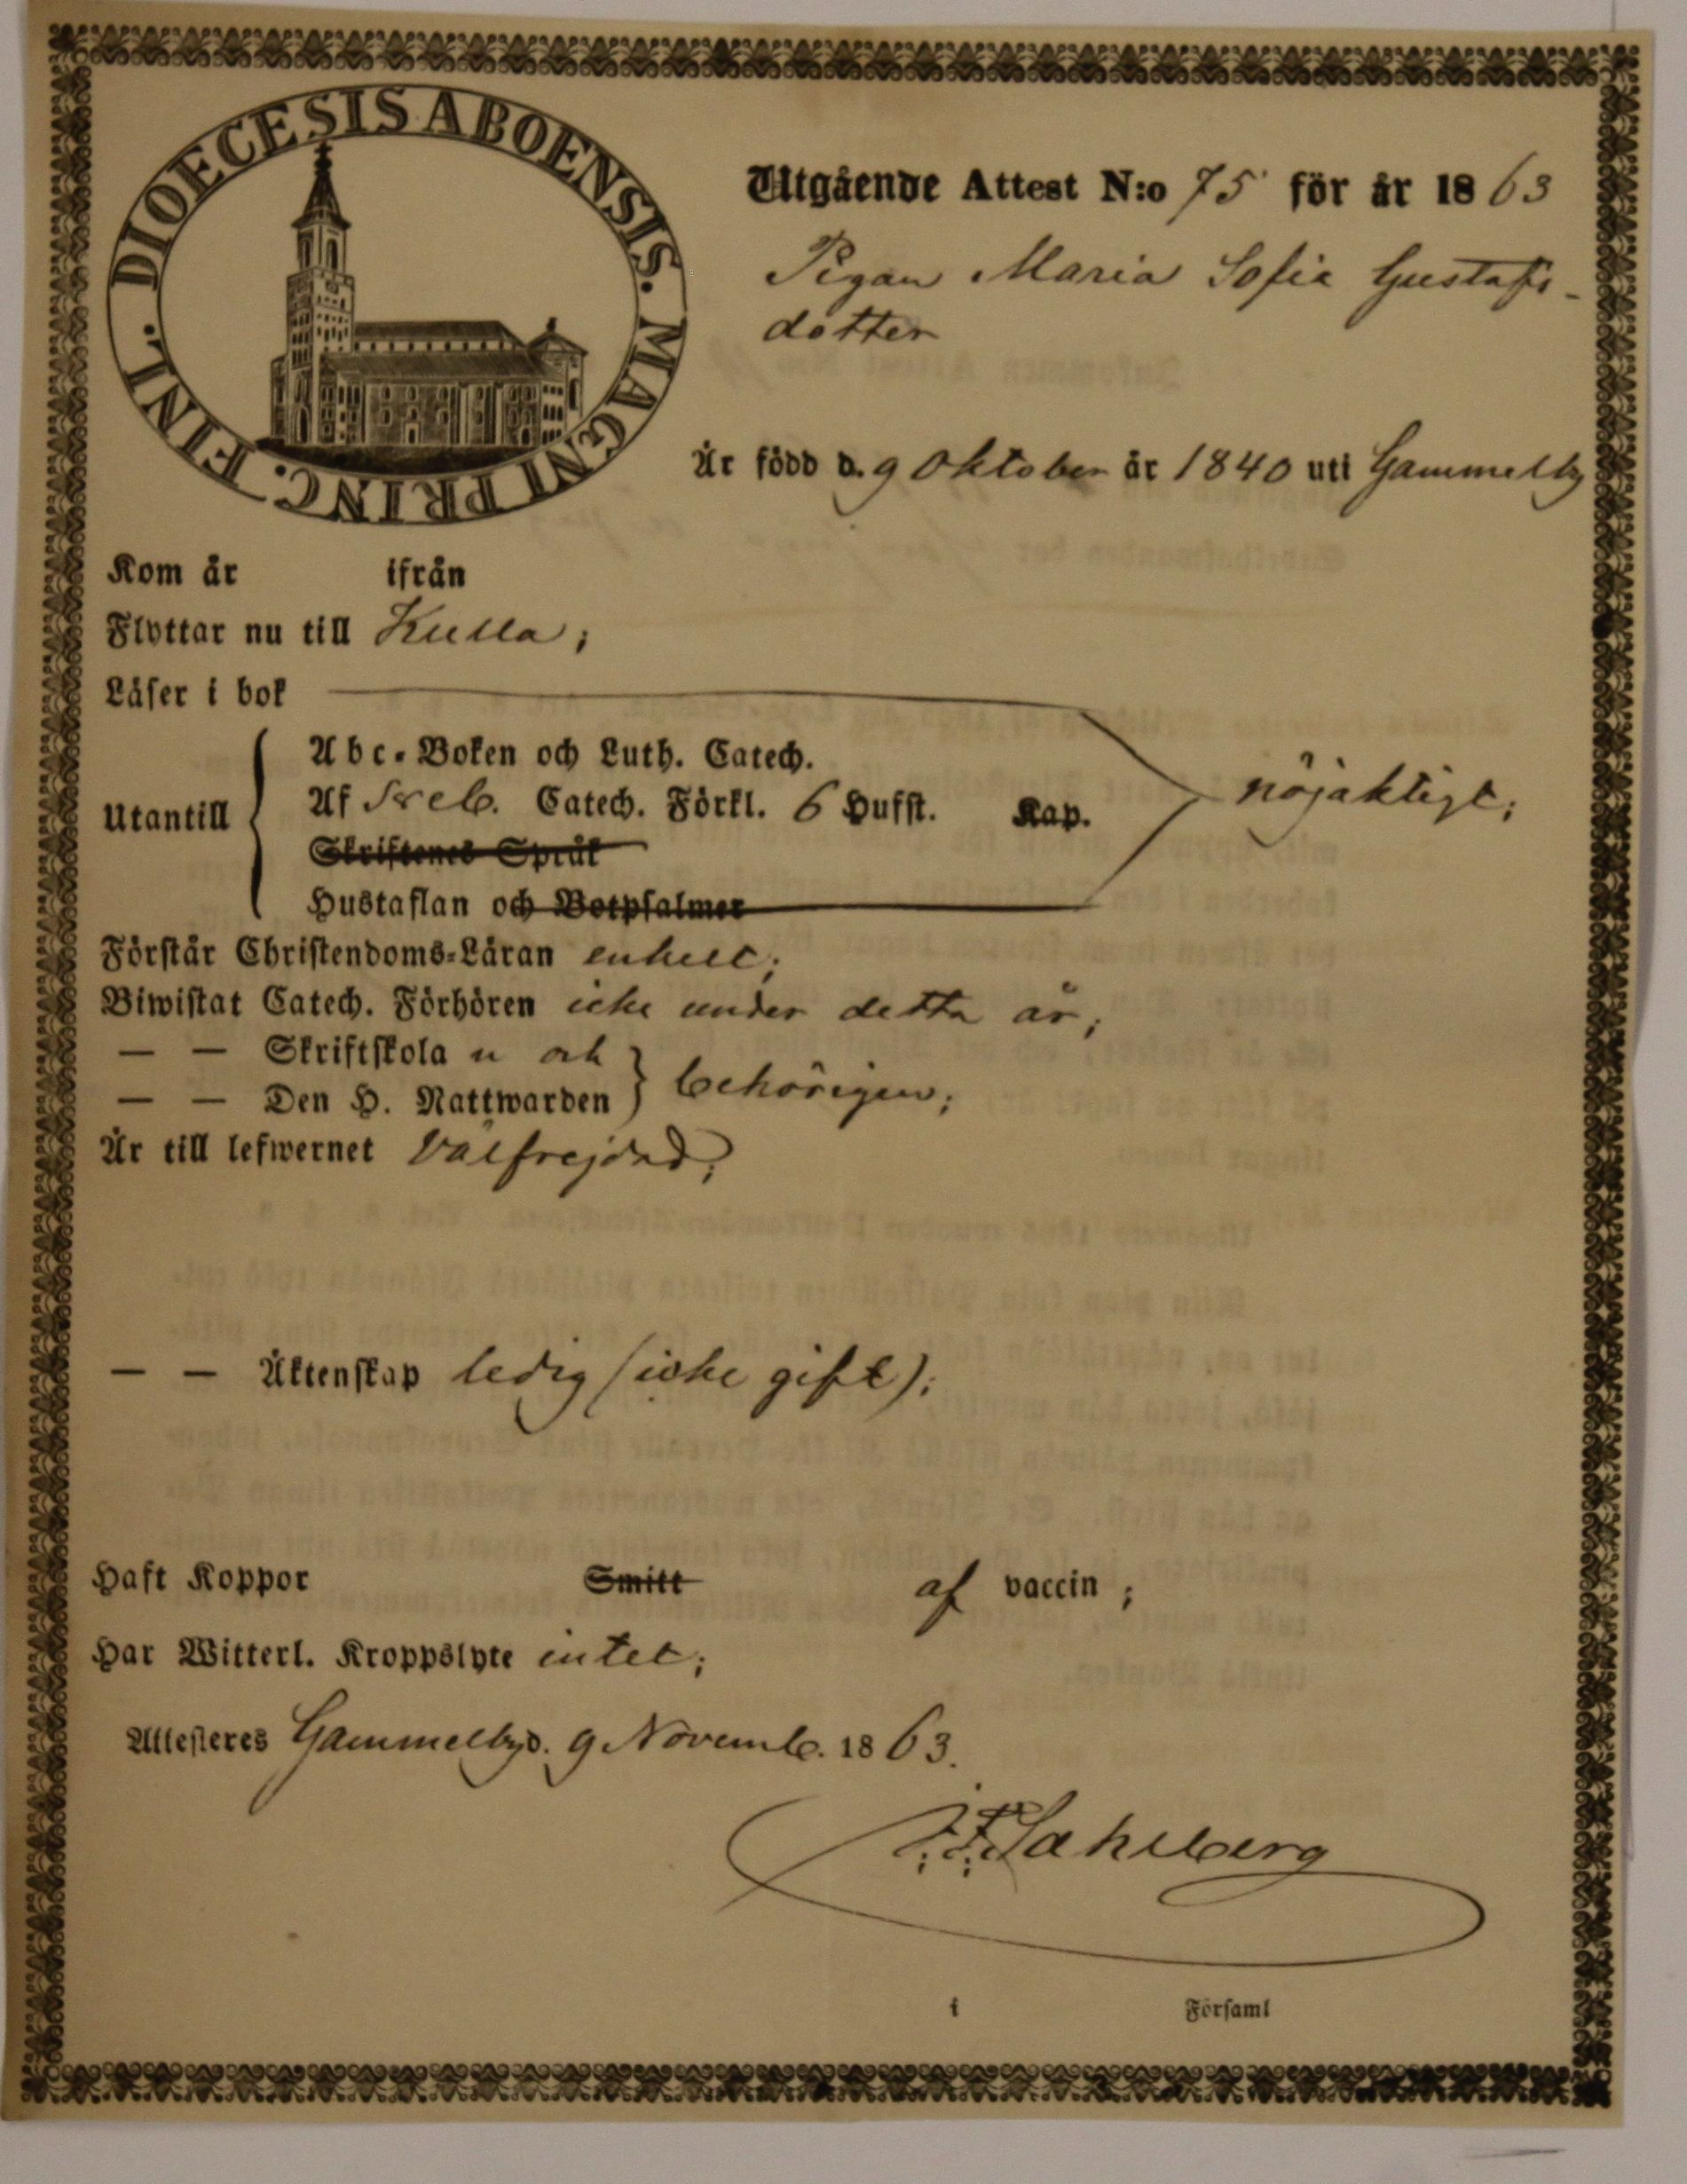 DIOECESIS ABOENSIS. MAGNI PRINC. FINL.
Utgående Attest N:o 75 för år 1863
Pigan Maria Sofia Gustafs-
dotter
Är född d. 9 Oktober år 1840 uti Gammelby
Kom år ifrån
Flyttar nu till Kulla;
Läser i bok
Abc-Boken och Luth. Catech.
Utantill Af Sveb. Catech. Förkl. 6 Hufst. Kap. nöjaktigt;
Skriftenes Språk
Hustaflan och Botpsalmer
Förstår Christendoms-Läran enkelt;
Biwistat Catech. Förhören icke under detta år;
— — Skriftskola n och
— — Den H. Nattwarden behörigen;
Är till lefwernet välfrejdad;
— — Äktenskap ledig (icke gift);
Haft Koppor Smitt af vaccin;
Har Witterl. Kroppslyte intet;
Attesteres Gammelby d. 9 Novemb. 1863.
Sahlberg
i Församl